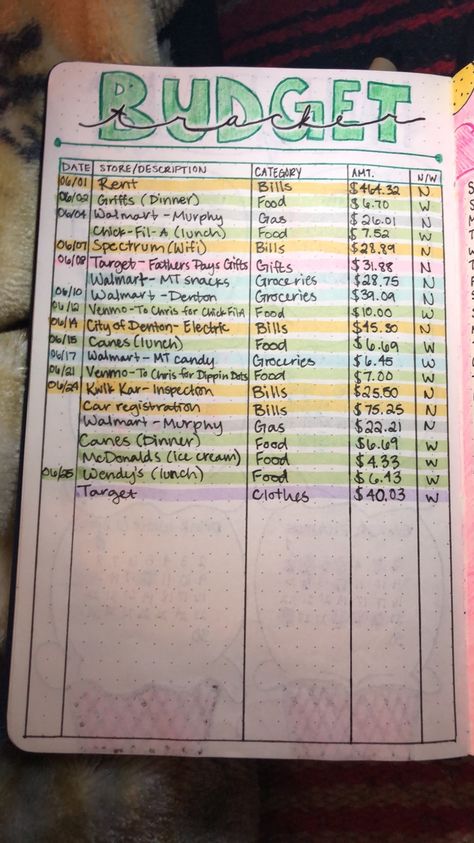 BUDGET
tracker
DATE STORE/DESCRIPTION CATEGORY AMT. N/W
06/01 Rent Bills $464.32 N
06/02 Griffs (Dinner) Food $6.70 W
06/04 Walmart - Murphy Gas $26.01 N
Chick-Fil-A (lunch) Food $7.52 W
06/07 Spectrum (Wifi) Bills $28.89 N
06/08 Target - Fathers Days Gifts Gifts $31.88 N
Walmart - MT snacks Groceries $28.75 N
06/10 Walmart - Denton Groceries $39.09 N
06/12 Venmo - To Chris for Chick Fil A Food $10.00 W
06/14 City of Denton - Electric Bills $45.80 N
06/15 Canes (lunch) Food $6.69 W
06/17 Walmart - MT candy Groceries $6.45 W
06/21 Venmo - To Chris for Dippin Dots Food $7.00 W
06/24 Kwik Kar - Inspection Bills $25.50 N
Car registration Bills $75.25 N
Walmart - Murphy Gas $22.21 N
Canes (Dinner) Food $6.69 W
McDonalds (ice cream) Food $4.33 W
06/25 Wendy's (lunch) Food $6.43 W
Target Clothes $40.03 W